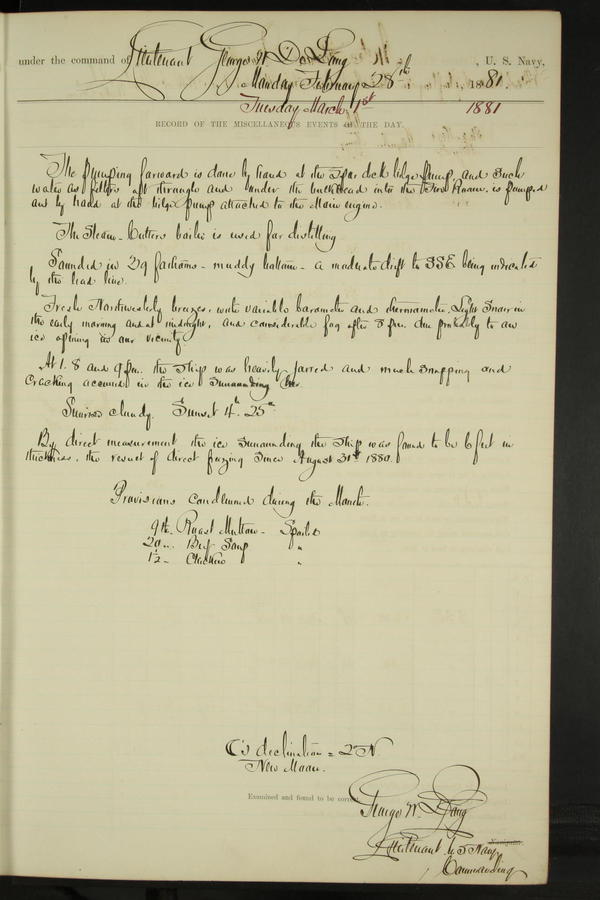 under the command of Lieutenant George W. De Long, U. S. Navy,
Monday February 28th 1881
Tuesday March 1st 1881
RECORD OF THE MISCELLANEOUS EVENTS OF THE DAY.
The pumping forward is done by hand at the Spar deck bilge pump, and such
water as filters aft through and under the bulkhead into the Fire Room, is pumped
out by hand at the bilge pump attached to the Main engine.
The Steam-Cutters boiler is used for distilling
Sounded in 29 fathoms - muddy bottom - a moderate drift to SSE being indicated
by the lead line.
Fresh Northwesterly breezes, with variable barometer and thermometer, Light Snow in
the early morning and at midnight, and considerable fog after 8 pm. due probably to an
ice opening in our vicinity.
At 1. 8 and 9 pm. the Ship was heavily jarred and much snapping and
cracking occurred in the ice surrounding her.
Sunrise cloudy. Sunset 4h. 25m
By direct measurement the ice surrounding the Ship was found to be 6 feet in
thickness, the result of direct freezing since August 31st 1880.
Provisions condemned during the Month.
9 lbs. Roast Mutton - Spoiled
20 " Beef Soup "
1½ " Chicken "
☾'s declination = 2° N.
New Moon.
Examined and found to be correct.
George W. De Long
Navigator.
Lieutenant U.S. Navy
Commanding